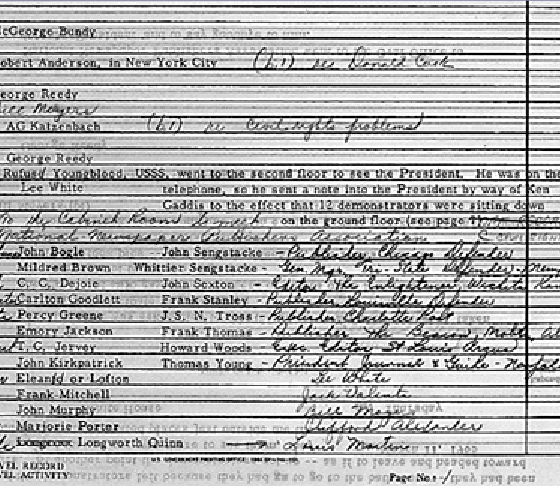 McGeorge Bundy
Robert Anderson, in New York City (b.1) re Donald Cook
George Reedy
Bill Moyers
AG Katzenbach (b.1) re Civil rights problems
George Reedy
Rufus Youngblood, USSS, went to the second floor to see the President. He was on the
Lee White telephone, so he sent a note into the President by way of Ken
Gaddis to the effect that 12 demonstrators were sitting down
To the Cabinet Room to meet on the ground floor (see page
National Newspaper Publishers Association
John Bogle John Sengstacke - Publisher, Chicago Defender
Mildred Brown Whittier Sengstacke - Gen Mgr, Tri-State Defender
C. C. Dejoie John Sexton - Editor, The Enlightener, Wichita
Carlton Goodlett Frank Stanley - Publisher, Louisville Defender
Percy Greene J. S. N. Tross - Publisher, Charlotte Post
Emory Jackson Frank Thomas - Publisher The Beacon, Mobile
T. C. Jervey Howard Woods - Exec. Editor, St Louis Argus
John Kirkpatrick Thomas Young - President Journal & Guide - Norfolk
Eleanor Lofton Lee White
Frank Mitchell Jack Valenti
John Murphy Bill Moyers
Marjorie Porter Clifford Alexander
Longworth Quinn Louis Martin
VEL RECORD
VEL ACTIVITY Page No.